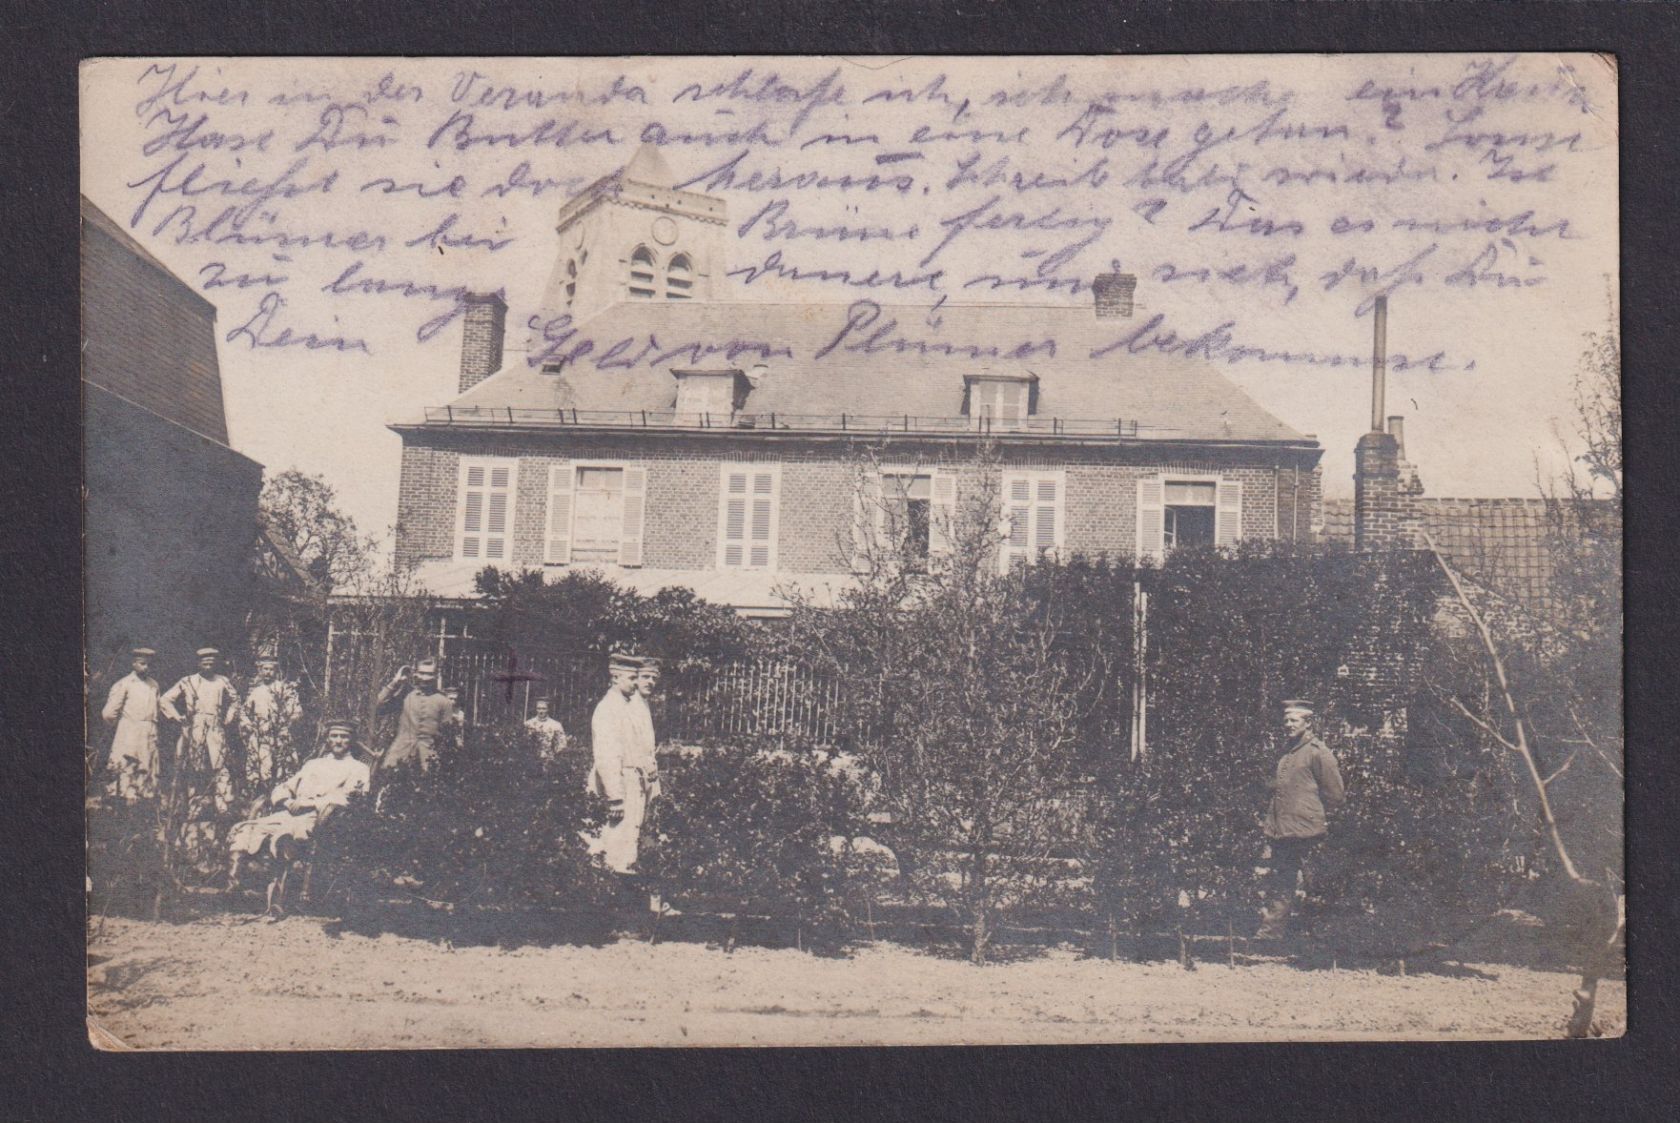 Hier in der Veranda schlafe ich, ich mache ein Kreuz
Hast Du Butter auch in eine Dose getan? Sonst
fließt sie doch heraus. Schreib bald wieder. Ist
Blümer bei Brüne fertig? Das es nicht
zu lange dauert, und sieh, daß Du
Dein Geld von Plümer bekommst.